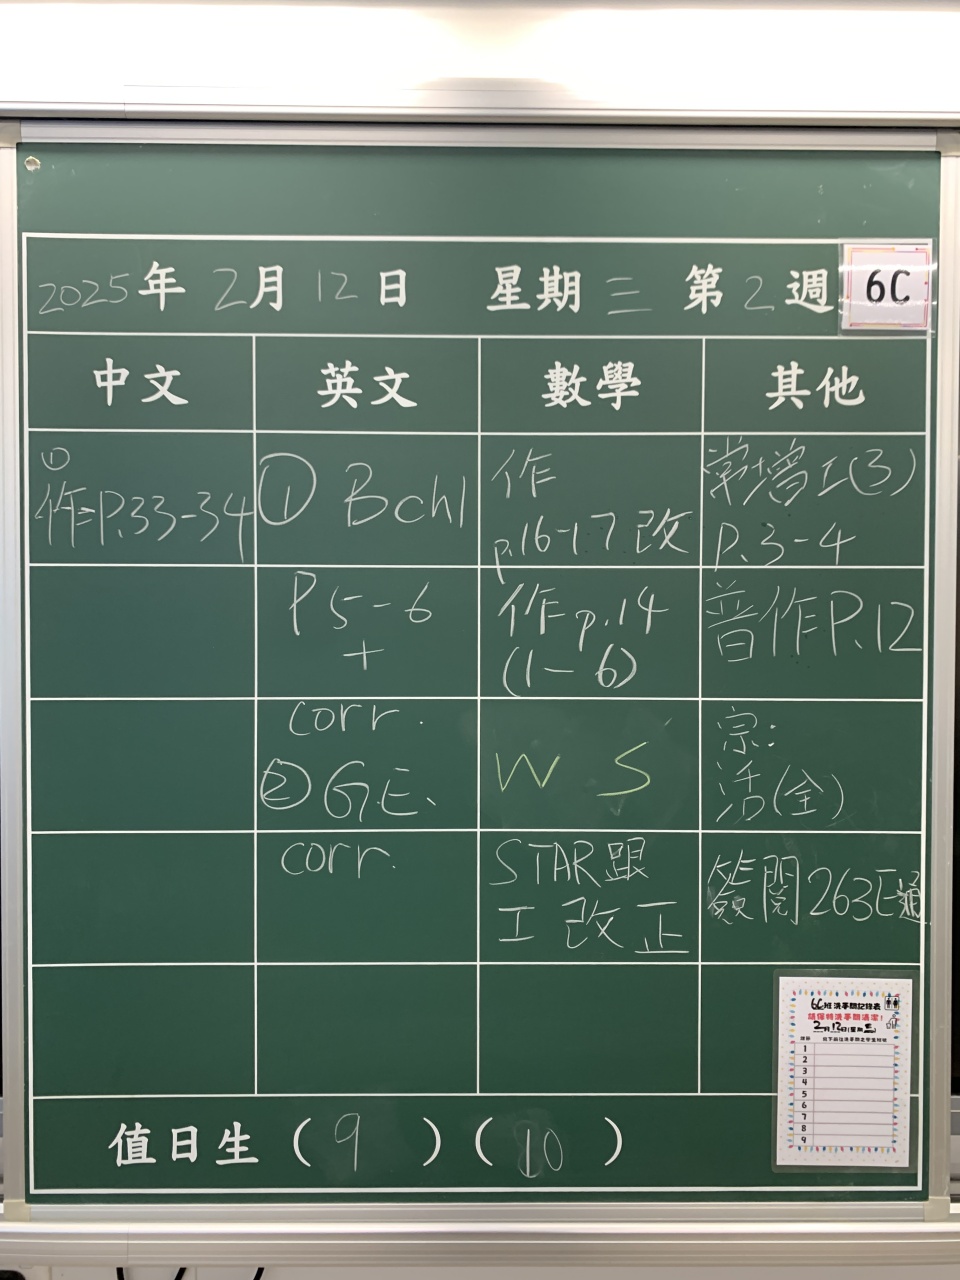 2025年 2月 12日 星期三 第2週 6C
中文 英文 數學 其他
①
作P.33-34
① Bchl
P 5-6
+
corr.
② G.E.
corr.
作
p.16-17 改
作 p.14
(1-6)
W S
STAR跟
工 改 正
常增工(3)
P.3-4
普作P.12
宗:
活(全)
簽閱263E通
6C班洗手間記錄表
請保持洗手間清潔!
2月12日(星期三)
1
2
3
4
5
6
7
8
9
值日生(9)(10)